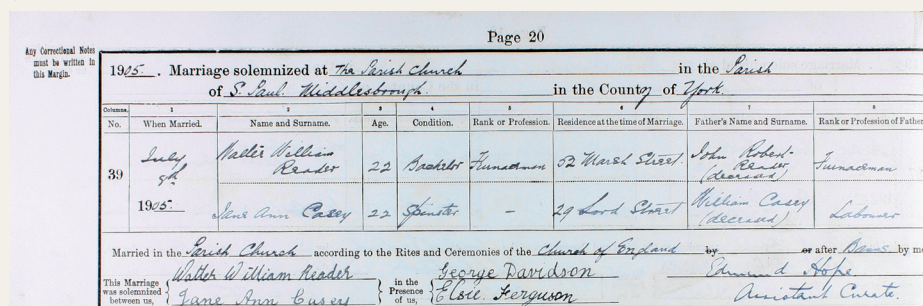 Page 20
Any Correctional Notes
must be written in
this Margin.
1905. Marriage solemnized at The Parish Church in the Parish
of S. Paul. Middlesbrough. in the County of York.
Columns. 1 2 3 4 5 6 7 8
No. When Married. Name and Surname. Age. Condition. Rank or Profession. Residence at the time of Marriage. Father's Name and Surname. Rank or Profession of Father
39 July 8th 1905. Walter William Reader 22 Bachelor Furnaceman 52 Marsh Street. John Robert Reader (deceased) Furnaceman
Jane Ann Casey 22 Spinster – 29 Lord Street William Casey (deceased) Labourer
Married in the Parish Church according to the Rites and Ceremonies of the Church of England by or after Banns by me
This Marriage was solemnized between us, Walter William Reader in the Presence of us, George Davidson Edmund Hope.
Jane Ann Casey Elsie Ferguson Assistant Curate.